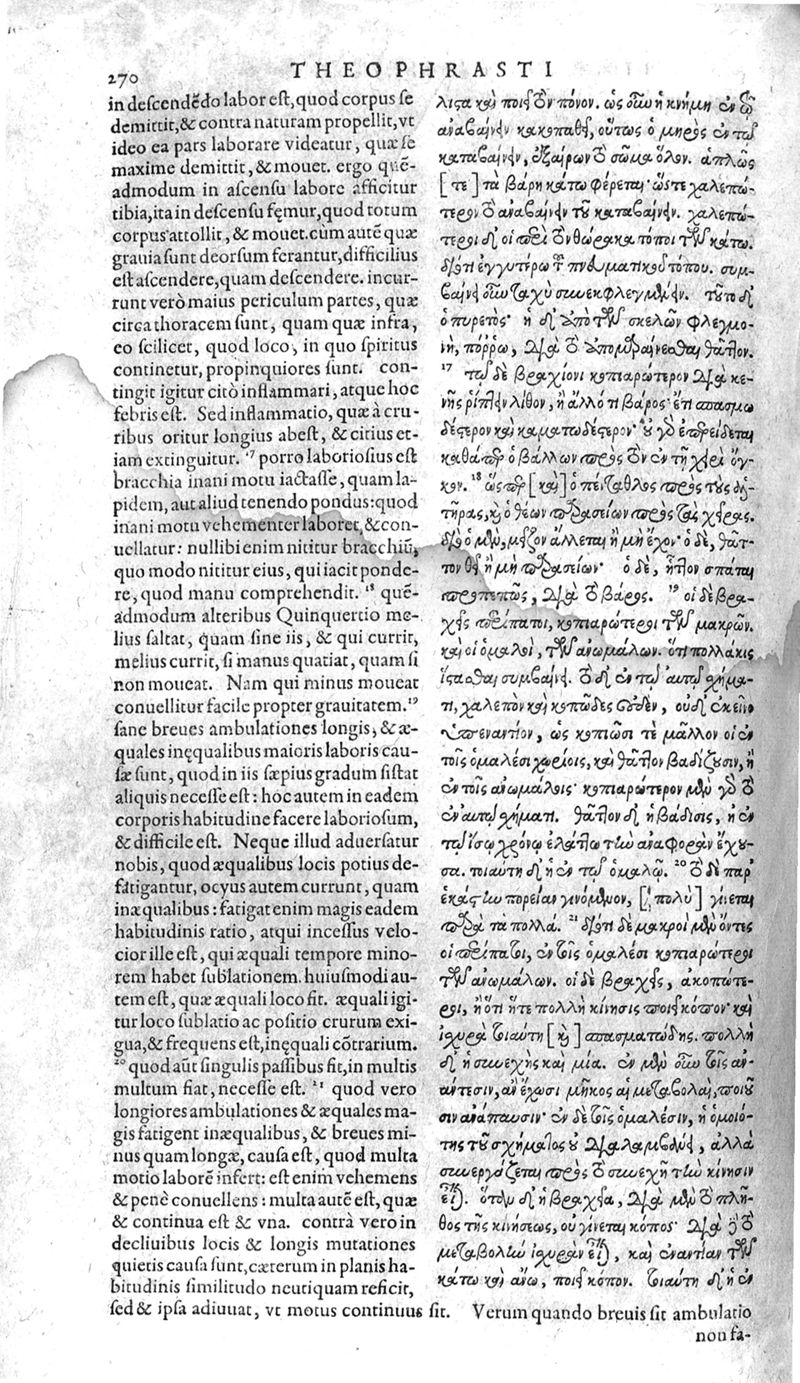 270
THEOPHRASTI
in descendēdo labor est, quod corpus se
demittit, & contra naturam propellit, vt
ideo ea pars laborare videatur, quæ se
maxime demittit, & mouet. ergo quē-
admodum in ascensu labore afficitur
tibia, ita in descensu fęmur, quod totum
corpus attollit, & mouet. cùm autē quæ
grauia sunt deorsum ferantur, difficilius
est ascendere, quam descendere. incur-
runt verò maius periculum partes, quæ
circa thoracem sunt, quam quæ infra,
eo scilicet, quod loco, in quo spiritus
continetur, propinquiores sunt. con-
tingit igitur citò inflammari, atque hoc
febris est. Sed inflammatio, quæ à cru-
ribus oritur longius abest, & citius et-
iam extinguitur. 17 porro laboriosius est
bracchia inani motu iactasse, quam la-
pidem, aut aliud tenendo pondus: quod
inani motu vehementer laboret, & con-
uellatur: nullibi enim nititur bracchiū,
quo modo nititur eius, qui iacit ponde-
re, quod manu comprehendit. 18 quē-
admodum alteribus Quinquertio me-
lius saltat, quam sine iis, & qui currit,
melius currit, si manus quatiat, quam si
non moueat. Nam qui minus moueat
conuellitur facile propter grauitatem. 19
sane breues ambulationes longis, & æ-
quales inęqualibus maioris laboris cau-
sæ sunt, quod in iis sæpius gradum sistat
aliquis necesse est: hoc autem in eadem
corporis habitudine facere laboriosum,
& difficile est. Neque illud aduersatur
nobis, quod æqualibus locis potius de-
fatigantur, ocyus autem currunt, quam
inæqualibus: fatigat enim magis eadem
habitudinis ratio, atqui incessus velo-
cior ille est, qui æquali tempore mino-
rem habet sublationem. huiusmodi au-
tem est, quæ æquali loco fit. æquali igi-
tur loco sublatio ac positio crurum exi-
gua, & frequens est, inęquali cōtrarium.
20 quod aūt singulis passibus fit, in multis
multum fiat, necesse est. 21 quod vero
longiores ambulationes & æquales ma-
gis fatigent inæqualibus, & breues mi-
nus quam longæ, causa est, quod multa
motio laborē infert: est enim vehemens
& penè conuellens: multa autē est, quæ
& continua est & vna. contrà vero in
decliuibus locis & longis mutationes
quietis causa sunt, cæterum in planis ha-
bitudinis similitudo neutiquam reficit,
sed & ipsa adiuuat, vt motus continuus sit. Verum quando breuis sit ambulatio
non fa-
λιστα καὶ ποιεῖ τὸν πόνον. ὡς οὖν ἡ κνήμη ἐν τῷ
ἀναβαίνειν κακοπαθεῖ, οὕτως ὁ μηρὸς ἐν τῷ
καταβαίνειν, ἐξαίρων τὸ σῶμα ὅλον. ἁπλῶς
[τε] τὰ βάρη κάτω φέρεται· ὥστε χαλεπώ-
τερον τὸ ἀναβαίνειν τοῦ καταβαίνειν. χαλεπώ-
τεροι δ' οἱ περὶ τὸν θώρακα τόποι τῶν κάτω.
διότι ἐγγυτέρω τοῦ πνευματικοῦ τόπου. συμ-
βαίνει οὖν ταχὺ συνεκφλεγμαίνειν. τοῦτο δ'
ὁ πυρετός· ἡ δ' ἀπὸ τῶν σκελῶν φλεγμο-
νὴ, πόῤῥω, διὰ τὸ ἀπομαραίνεσθαι θᾶττον.
17 τῷ δὲ βραχίονι κοπιαρώτερον διὰ κε-
νῆς ῥίπτειν λίθον, ἢ ἄλλό τι βάρος· ἔτι σπασμω
δέστερον καὶ καματωδέστερον· οὐ γὰρ ἐπερείδεται
καθάπερ ὁ βάλλων πρὸς τὸν ἐν τῇ χειρὶ ὄγ-
κον. 18 ὥσπερ [καὶ] ὁ πένταθλος πρὸς τοὺς ἁλ-
τῆρας, καὶ ὁ θέων παρασείων πρὸς τὰς χεῖρας.
διὸ ὁ μὲν, μεῖζον ἅλλεται ἢ μὴ ἔχον· ὁ δὲ, θᾶτ-
τον θεῖ ἢ μὴ παρασείων· ὁ δὲ, ἧττον σπᾶται
προπετῶς, διὰ τὸ βάρος. 19 οἱ δὲ βρα-
χεῖς περίπατοι, κοπιαρώτεροι τῶν μακρῶν.
καὶ οἱ ὁμαλοὶ, τῶν ἀνωμάλων. ὅτι πολλάκις
ἵστασθαι συμβαίνει. τὸ δ' ἐν τῷ αὐτῷ σχήμα-
τι, χαλεπὸν καὶ κοπῶδες οὐδὲν, οὐδ' ἐκεῖνο
ὑπεναντίον, ὡς κοπιῶσι τὲ μᾶλλον οἱ ἐν
τοῖς ὁμαλέσι χωρίοις, καὶ θᾶττον βαδίζουσιν, ἢ
ἐν τοῖς ἀνωμάλοις· κοπιαρώτερον μὲν γὰρ τὸ
ἐν αὐτῷ σχήματι. θᾶττον δ' ἡ βάδισις, ἡ ἐν
τῷ ἴσῳ χρόνῳ ἐλάττω τὴν ἀναφορὰν ἔχου-
σα. τοιαύτη δ' ἡ ἐν τῷ ὁμαλῷ. 20 τὸ δὲ παρ'
ἑκάστην πορείαν γινόμενον, [πολὺ] γίνεται
παρὰ τὰ πολλά. 21 διότι δὲ μακροὶ μὲν ὄντες
οἱ περίπατοι, ἐν τοῖς ὁμαλέσι κοπιαρώτεροι
τῶν ἀνωμάλων. οἱ δὲ βραχεῖς, ἀκοπώτε-
ροι, ἢ ὅτι ἥτε πολλὴ κίνησις ποιεῖ κόπον· καὶ
ἰσχυρὰ τοιαύτη [καὶ] σπασματώδης. πολλὴ
δ' ἡ συνεχὴς καὶ μία. ἐν μὲν οὖν τοῖς ἀν-
άντεσιν, ἂν ἔχωσι μῆκος αἱ μεταβολαὶ, ποιοῦ
σιν ἀνάπαυσιν· ἐν δὲ τοῖς ὁμαλέσιν, ἡ ὁμοιό-
της τοῦ σχήματος οὐ διαλαμβάνει, ἀλλὰ
συνεργάζεται πρὸς τὸ συνεχῆ τὴν κίνησιν
εἶναι. ὅταν δ' ᾖ βραχεῖα, διὰ μὲν τὸ πλῆ-
θος τῆς κινήσεως, οὐ γίνεται κόπος· διὰ δὲ τὸ
μεταβολὴν ἰσχυρὰν εἶναι, καὶ ἐναντίαν τῶν
κάτω καὶ ἄνω, ποιεῖ κόπον. τοιαύτη δ' ἡ ἐν